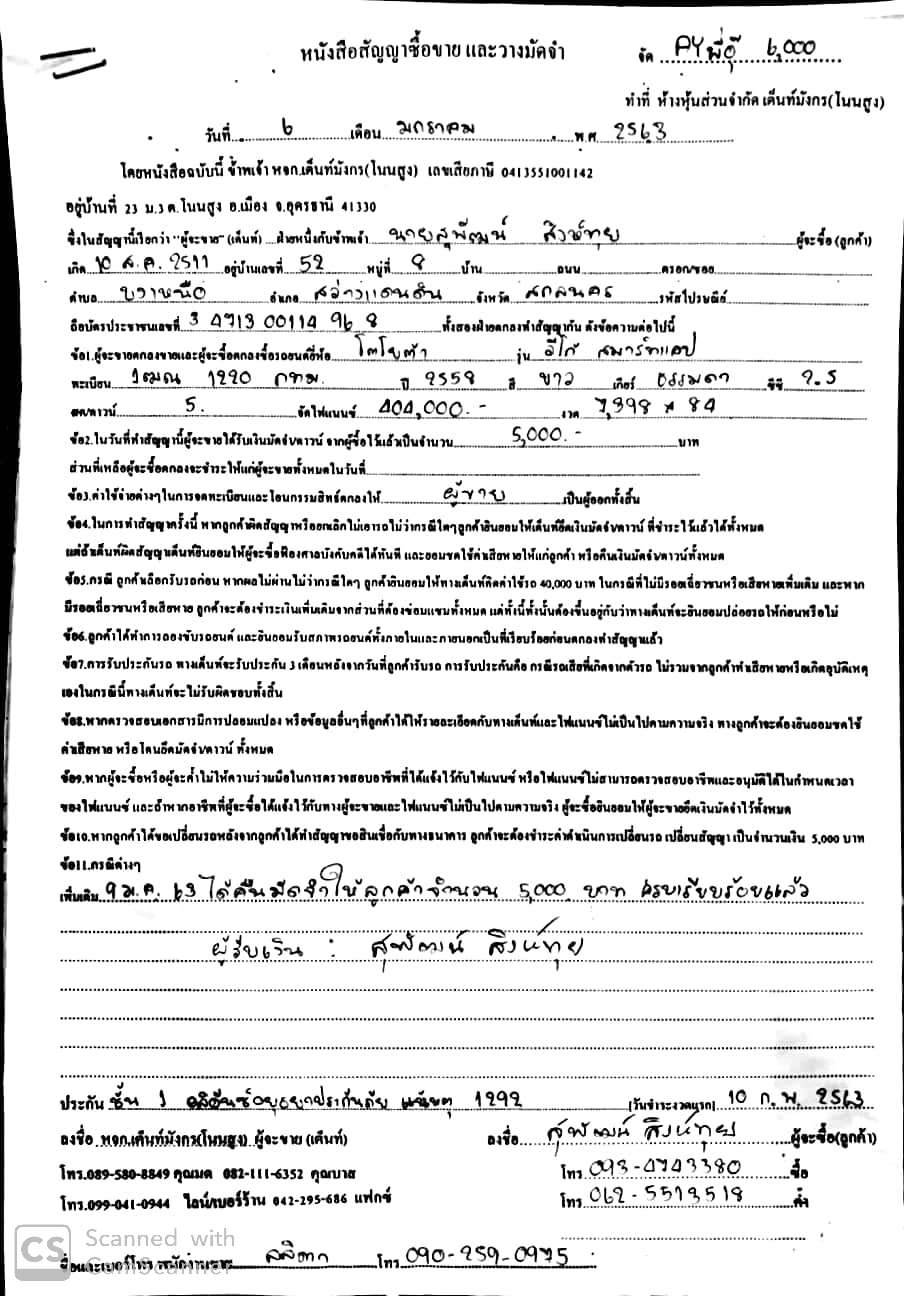 หนังสือสัญญาซื้อขาย และวางมัดจำ
จัด PYพี่อุ๊ 6,000
ทำที่ ห้างหุ้นส่วนจำกัด เต็นท์มังกร(โนนสูง)
วันที่ 6 เดือน มกราคม พ.ศ. 2563
โดยหนังสือฉบับนี้ ข้าพเจ้า หจก.เต็นท์มังกร(โนนสูง) เลขเสียภาษี 0413551001142
อยู่บ้านที่ 23 ม.3 ต.โนนสูง อ.เมือง จ.อุดรธานี 41330
ซึ่งในสัญญานี้เรียกว่า "ผู้จะขาย" (เต็นท์) ฝ่ายหนึ่งกับข้าพเจ้า นายสุพัฒน์ สิงห์ทุย ผู้จะซื้อ (ลูกค้า)
เกิด 10 ส.ค. 2511 อยู่บ้านเลขที่ 52 หมู่ที่ 8 บ้าน ถนน ตรอก/ซอย
ตำบล อำเภอ สว่างแดนดิน จังหวัด สกลนคร รหัสไปรษณีย์
ถือบัตรประชาชนเลขที่ 3 4713 00114 96 8 ทั้งสองฝ่ายตกลงทำสัญญากัน ดังข้อความต่อไปนี้
ข้อ1.ผู้จะขายตกลงขายและผู้จะซื้อตกลงซื้อรถยนต์ยี่ห้อ โตโยต้า รุ่น วีโก้ สมาร์ทแคป
ทะเบียน 1ฒณ 1220 กทม. ปี 2558 สี ขาว เกียร์ ธรรมดา ซีซี 2.5
สด/ดาวน์ 5. จัดไฟแนนซ์ 404,000.- งวด 7,398 * 84
ข้อ2.ในวันที่ทำสัญญานี้ผู้จะขายได้รับเงินมัดจำ/ดาวน์ จากผู้ซื้อไว้แล้วเป็นจำนวน 5,000.- บาท
ส่วนที่เหลือผู้จะซื้อตกลงจะชำระให้แก่ผู้จะขายทั้งหมดในวันที่
ข้อ3.ค่าใช้จ่ายต่างๆในการจดทะเบียนและโอนกรรมสิทธิ์ตกลงให้ ผู้ขาย เป็นผู้ออกทั้งสิ้น
ข้อ4.ในการทำสัญญาครั้งนี้ หากลูกค้าผิดสัญญาหรือยกเลิกไม่เอารถไม่ว่ากรณีใดๆลูกค้ายินยอมให้เต็นท์ยึดเงินมัดจำ/ดาวน์ ที่ชำระไว้แล้วได้ทั้งหมด
แต่ถ้าเต็นท์ผิดสัญญาเต็นท์ยินยอมให้ผู้จะซื้อฟ้องศาลบังคับคดีได้ทันที และยอมชดใช้ค่าเสียหายให้แก่ลูกค้า หรือคืนเงินมัดจำ/ดาวน์ทั้งหมด
ข้อ5.กรณี ลูกค้าเลือกรับรถก่อน หากผลไม่ผ่านไม่ว่ากรณีใดๆ ลูกค้ายินยอมให้ทางเต็นท์คิดค่าใช้รถ 40,000 บาท ในกรณีที่ไม่มีรอยเฉี่ยวชนหรือเสียหายเพิ่มเติม และหาก
มีรอยเฉี่ยวชนหรือเสียหาย ลูกค้าจะต้องชำระเงินเพิ่มเติมจากส่วนที่ต้องซ่อมแซมทั้งหมด แต่ทั้งนี้ทั้งนั้นต้องขึ้นอยู่กับว่าทางเต็นท์จะยินยอมปล่อยรถให้ก่อนหรือไม่
ข้อ6.ลูกค้าได้ทำการลองขับรถยนต์ และยินยอมรับสภาพรถยนต์ทั้งภายในและภายนอกเป็นที่เรียบร้อยก่อนตกลงทำสัญญาแล้ว
ข้อ7.การรับประกันรถ ทางเต็นท์จะรับประกัน 3 เดือนหลังจากวันที่ลูกค้ารับรถ การรับประกันคือ กรณีรถเสียที่เกิดจากตัวรถ ไม่รวมจากลูกค้าทำเสียหายหรือเกิดอุบัติเหตุ
เองในกรณีนี้ทางเต็นท์จะไม่รับผิดชอบทั้งสิ้น
ข้อ8.หากตรวจสอบเอกสารมีการปลอมแปลง หรือข้อมูลอื่นๆที่ลูกค้าได้ให้รายละเอียดกับทางเต็นท์และไฟแนนซ์ไม่เป็นไปตามความจริง ทางลูกค้าจะต้องยินยอมชดใช้
ค่าเสียหาย หรือโดนยึดมัดจำ/ดาวน์ ทั้งหมด
ข้อ9.หากผู้จะซื้อหรือผู้จะค้ำไม่ให้ความร่วมมือในการตรวจสอบอาชีพที่ได้แจ้งไว้กับไฟแนนซ์ หรือไฟแนนซ์ไม่สามารถตรวจสอบอาชีพและอนุมัติได้ในกำหนดเวลา
ของไฟแนนซ์ และถ้าหากอาชีพที่ผู้จะซื้อได้แจ้งไว้กับทางผู้จะขายและไฟแนนซ์ไม่เป็นไปตามความจริง ผู้จะซื้อยินยอมให้ผู้จะขายยึดเงินมัดจำไว้ทั้งหมด
ข้อ10.หากลูกค้าได้ขอเปลี่ยนรถหลังจากลูกค้าได้ทำสัญญาขอสินเชื่อกับทางธนาคาร ลูกค้าจะต้องชำระค่าดำเนินการเปลี่ยนรถ เปลี่ยนสัญญา เป็นจำนวนเงิน 5,000 บาท
ข้อ11.กรณีต่างๆ
เพิ่มเติม 9 ม.ค. 63 ได้คืนมัดจำให้ลูกค้าจำนวน 5,000 บาท ครบเรียบร้อยแล้ว
ผู้รับเงิน : สุพัฒน์ สิงห์ทุย
ประกัน ชั้น 1 อลิอันซ์อยุธยาประกันภัย 1292 (วันชำระงวดแรก) 10 ก.พ. 2563
ลงชื่อ หจก.เต็นท์มังกร(โนนสูง) ผู้จะขาย (เต็นท์) ลงชื่อ สุพัฒน์ สิงห์ทุย ผู้จะซื้อ(ลูกค้า)
โทร.089-580-8849 คุณมด 082-111-6352 คุณบาส โทร 093-4743380 ซื้อ
โทร.099-041-0944 ไลน์/เบอร์ร้าน 042-295-686 แฟกซ์ โทร 062-5513518 ค้ำ
CS Scanned with
CamScanner
ชื่อและเบอร์โทร พนักงานขาย ลลิตา โทร 090-259-0975